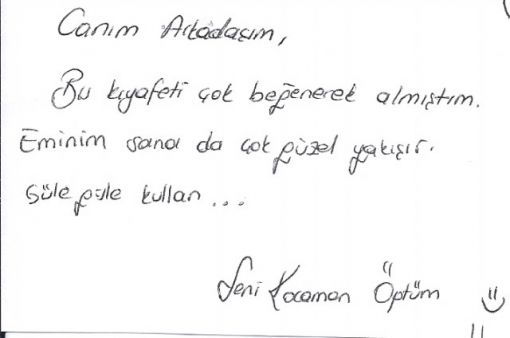 Canım Arkadaşım,
Bu kıyafeti çok beğenerek almıştım.
Eminim sana da çok güzel yakışır.
Güle güle kullan...
Seni Kocaman Öptüm